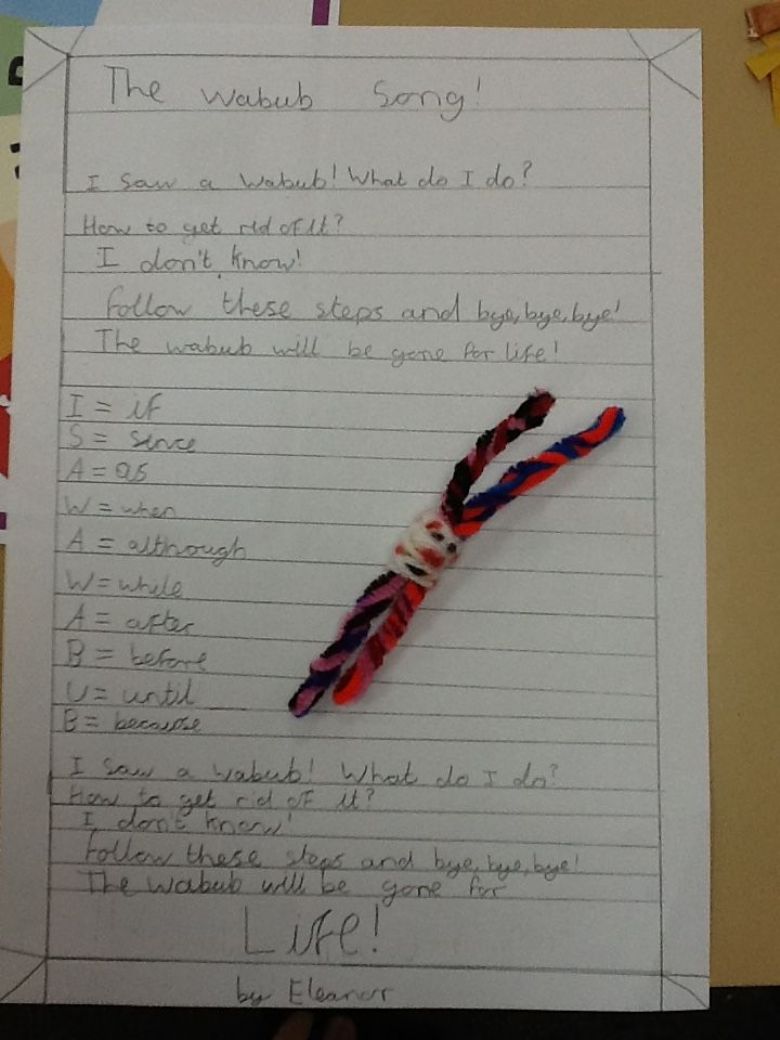 The wabub Song!
I saw a wabub! What do I do?
How to get rid of it?
I don't know!
Follow these steps and bye, bye, bye!
The wabub will be gone for life!
I = if
S = since
A = as
W = when
A = although
W = while
A = after
B = before
U = until
B = because
I saw a wabub! What do I do?
How to get rid of it?
I don't know!
Follow these steps and bye, bye, bye!
The wabub will be gone for
Life!
by Eleanor